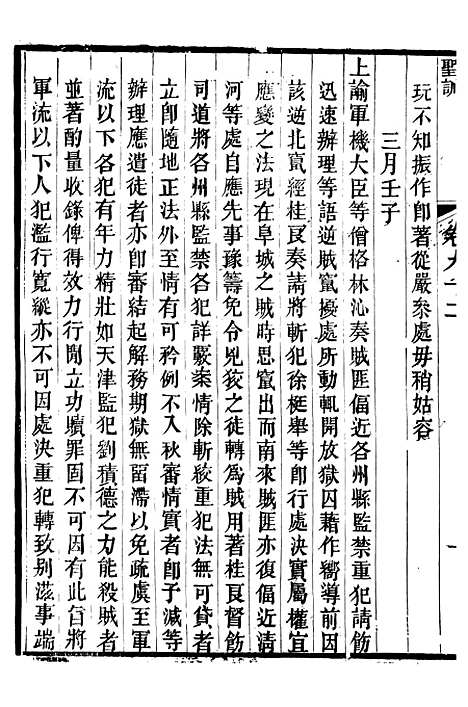 聖訓
卷九十二
一
玩不知振作卽著從嚴叅處毋稍姑容
三月壬子
上諭軍機大臣等僧格林沁奏賊匪偪近各州縣監禁重犯請飭
迅速辦理等語逆賊竄擾處所動輒開放獄囚藉作嚮導前因
該逆北竄經桂良奏請將斬犯徐梃舉等卽行處決實屬權宜
應變之法現在阜城之賊時思竄出而南來賊匪亦復偪近清
河等處自應先事豫籌免令兇狡之徒轉爲賊用著桂良督飭
司道將各州縣監禁各犯詳覈案情除斬絞重犯法無可貸者
立卽隨地正法外至情有可矜例不入秋審情實者卽予減等
辦理應遣徒者亦卽審結起解務期獄無留滯以免疏虞至軍
流以下各犯有年力精壯如天津監犯劉積德之力能殺賊者
並著酌量收錄俾得效力行閒立功贖罪固不可因有此旨將
軍流以下人犯濫行寬縱亦不可因處決重犯轉致別滋事端